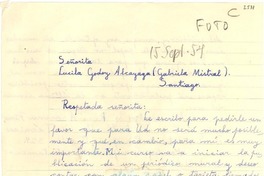 C
FOTO
15 Sept - 54
Señorita
Lucila Godoy Alcayaga (Gabriela Mistral).
Santiago.
Respetada señorita:
Le escribo para pedirle un
favor que para Ud no será mucho posible
mente y que en cambio, para mi es muy
importante. Mi curso va a iniciar la pu
blicación de un periódico mural, y deseo